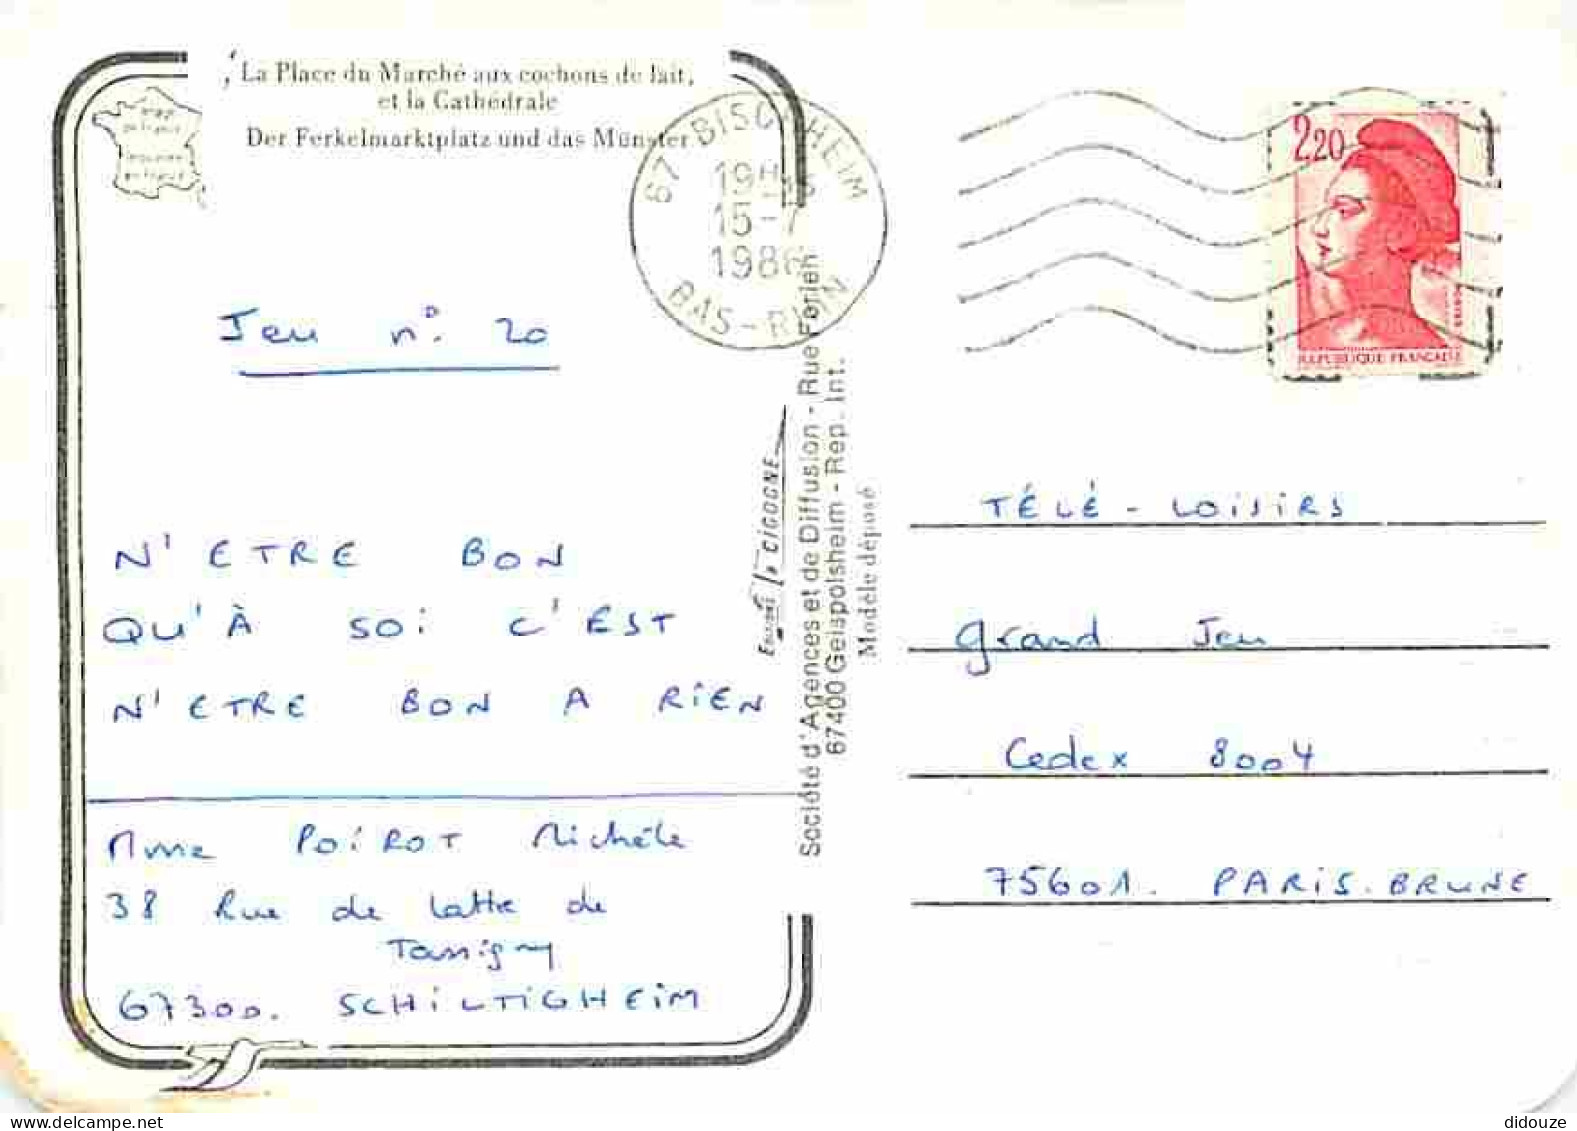 La Place du Marché aux cochons de lait,
et la Cathédrale
Der Ferkelmarktplatz und das Münster
67 BISCHHEIM
15-7
1986
BAS-RHIN
2,20
RÉPUBLIQUE FRANÇAISE
Jeu n° 20
N'ETRE BON
QU'À SOi C'EST
N'ETRE BON A RiEN
Mme POiROT Michèle
38 Rue de Lattre de
Tassigny
67300. SCHiLTiGHEiM
Editions la CIGOGNE
Société d'Agences et de Diffusion - Rue Ferien
67400 Geispolsheim - Rep. Int.
Modèle déposé
TÉLÉ - LOiSiRS
Grand Jeu
Cedex 8004
75601. PARiS. BRUNE
didouze
Delcampe.net